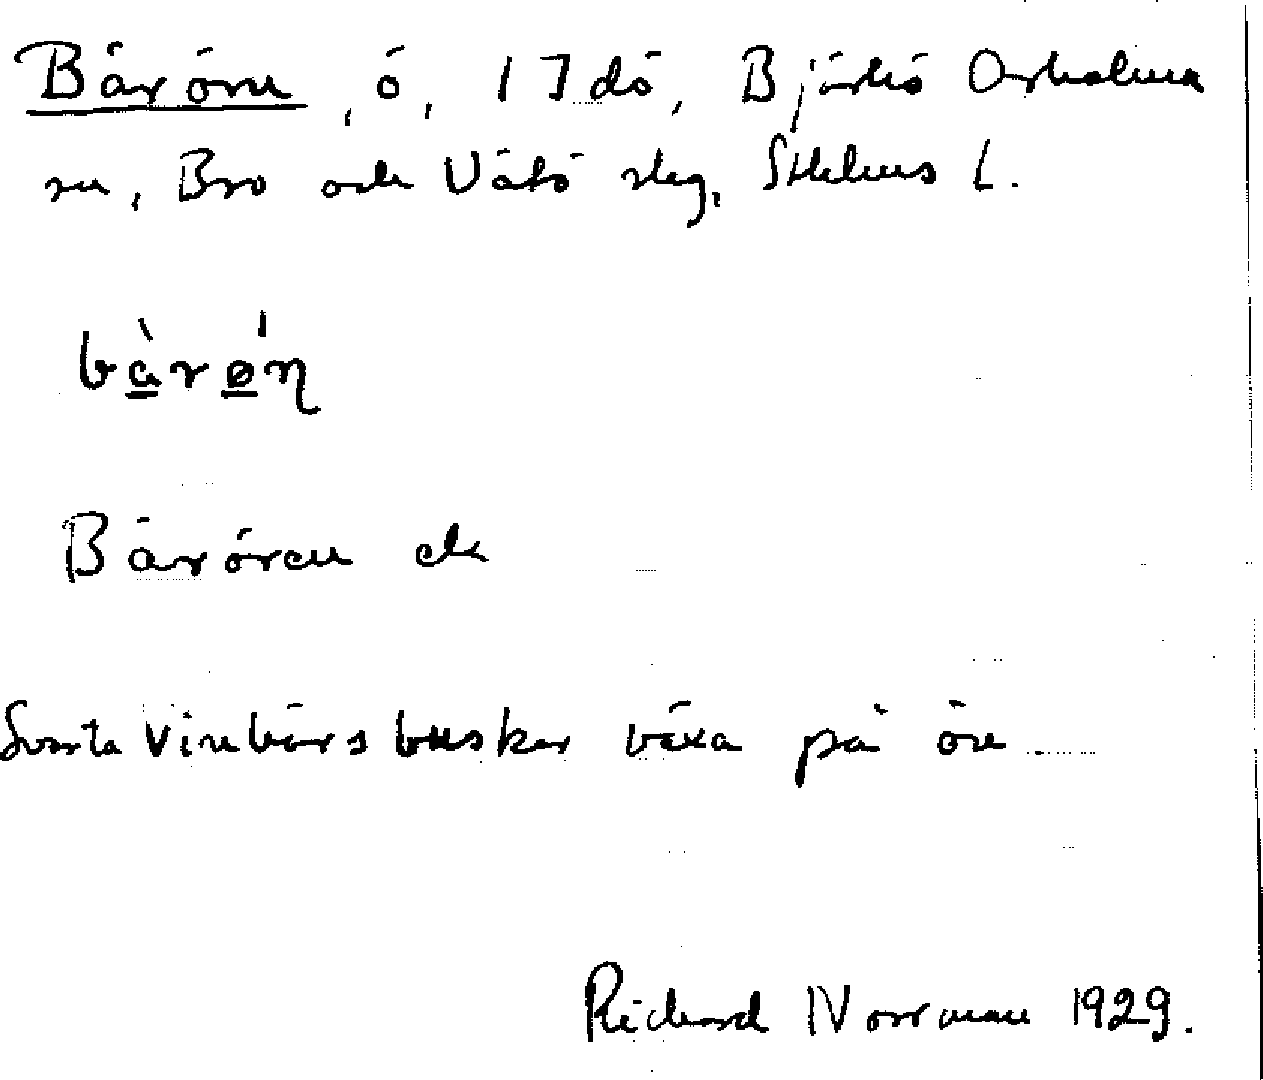 Bärörn, ö, 17 dö, Björkö Arholma
sn, Bro och Vätö skg, Sthlms L.
bä̀rø̀n
Bärören ek
Svarta Vinbärsbuskar växa på ön.
Richard Norrman 1929.